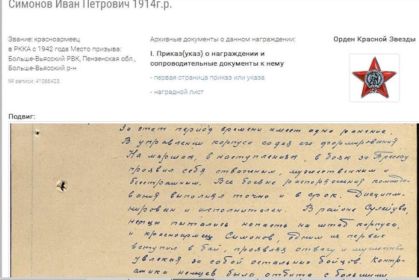 Симонов Иван Петрович 1914г.р.
Звание: красноармеец
в РККА с 1942 года Место призыва:
Больше-Вьясский РВК, Пензенская обл.,
Больше-Вьясский р-н
№ записи: 41086423
Архивные документы о данном награждении:
I. Приказ(указ) о награждении и
сопроводительные документы к нему
- первая страница приказ или указа
- наградной лист
Орден Красной Звезды
Подвиг:
За этот период времени имеет одно ранение.
В управлении корпуса со дня его формирования.
На маршах, в наступлениях, в боях за
проявил себя стойким, мужественным и
бесстрашным. Все боевые распоряжения командо-
вания выполнял точно и в срок. Дисципли-
нирован и исполнителен. В районе
немцы пытались напасть на штаб корпуса,
и красноармеец Симонов, одним из первых
вступил в бой, проявляя отвагу и мужество
увлекая за собой остальных бойцов. Контр-
атака немцев была отбита с большими